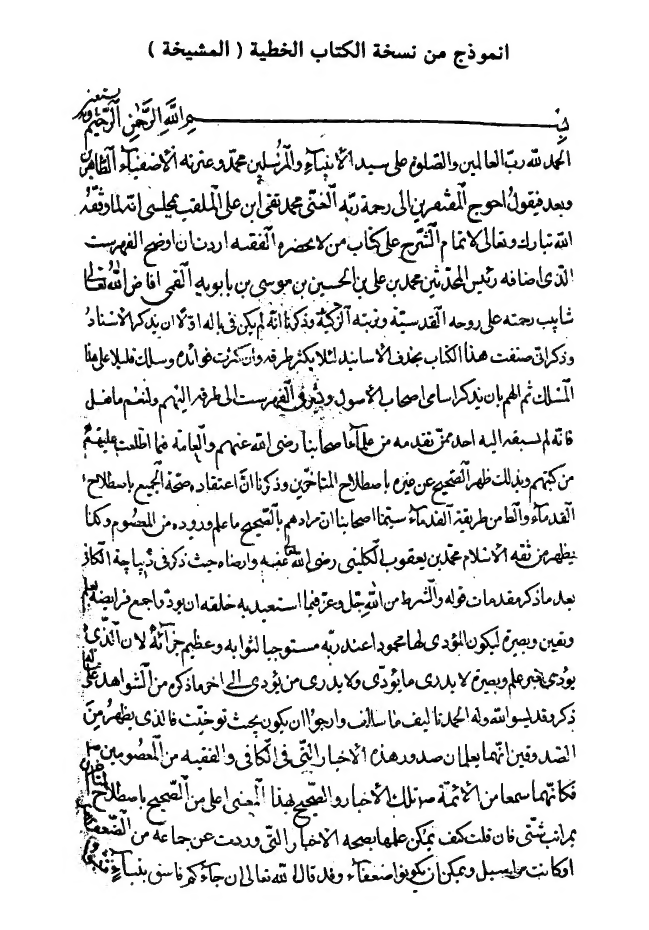 انموذج من نسخة الكتاب الخطية ( المشيخة )
بسم الله الرحمن الرحيم وبه نستعين
الحمد لله رب العالمين والصلوة على سيد الأنبياء والمرسلين محمد وعترته الأصفياء الطاهرين
وبعد فيقول احوج المفتقرين الى رحمة ربه الغنى محمد تقى ابن على الملقب بمجلسى انه لما وفقه
الله تبارك وتعالى لاتمام الشرح على كتاب من لا يحضره الفقيه اردت ان اوضح الفهرست
الذى اضافه رئيس المحدثين محمد بن على بن الحسين بن موسى بن بابويه القمى افاض الله تعالى
شابيب رحمته على روحه القدسية وتربته الزكية وذكرنا انه لم يكن فى باله اولا ان يذكر الاسناد
وذكر انى صنفت هذا الكتاب بحذف الاسانيد لئلا يكثر طرقه وان كثرت فوائده وسلك قليلا على هذا
المسلك ثم الهم بان يذكر اسامى اصحاب الأصول ويذكر فى الفهرست الى طرقه اليهم ولنعم ما فعل
فانه لم يسبقه اليه احد ممن تقدمه من علماء اصحابنا رضى الله عنهم والعامة فما اطلعت عليهم
من كتبهم وبذلك ظهر الصحيح عن غيره باصطلاح المتاخرين وذكرنا ان اعتقاده صحة الجميع باصطلاح
القدماء والظاهر من طريقة القدماء سيما اصحابنا ان مرادهم بالصحيح ما علم وروده من المعصوم وكذا
يظهر من ثقة الاسلام محمد بن يعقوب الكلينى رضى الله تعالى عنه وارضاه حيث ذكر فى ديباجة الكافى
بعد ما ذكر مقدمات قوله والشرط من الله جل وعز فيما استعبد به خلقه ان يؤدوا جميع فرايضه بعلم
ويقين وبصيرة ليكون المؤدى لها محمودا عند ربه مستوجبا لثوابه وعظيم جزائه لان الذى
يؤدى بغير علم وبصيرة لا يدرى ما يؤدى ولا يدرى من يؤدى الى اخر ما ذكره من الشواهد على
ذكر وقد يسر الله وله الحمد تاليف ما سالت وارجو ان يكون بحيث توخيت فالذى يظهر من
الصدوقين انهما يعلمان صدور هذه الاخبار التى فى الكافى والفقيه من المعصومين
فكانهما سمعا من الأئمة تلك الأخبار والصحيح بهذا المعنى اعلى من الصحيح باصطلاح المتاخرين
بمراتب شتى فان قلت كيف يمكن علمها بصحة الاخبار التى وردت عن جماعة من الضعفاء
او كانت مراسيل ويمكن ان يكونوا ضعفاء وقد قال الله تعالى ان جاءكم فاسق بنباء فتبينوا